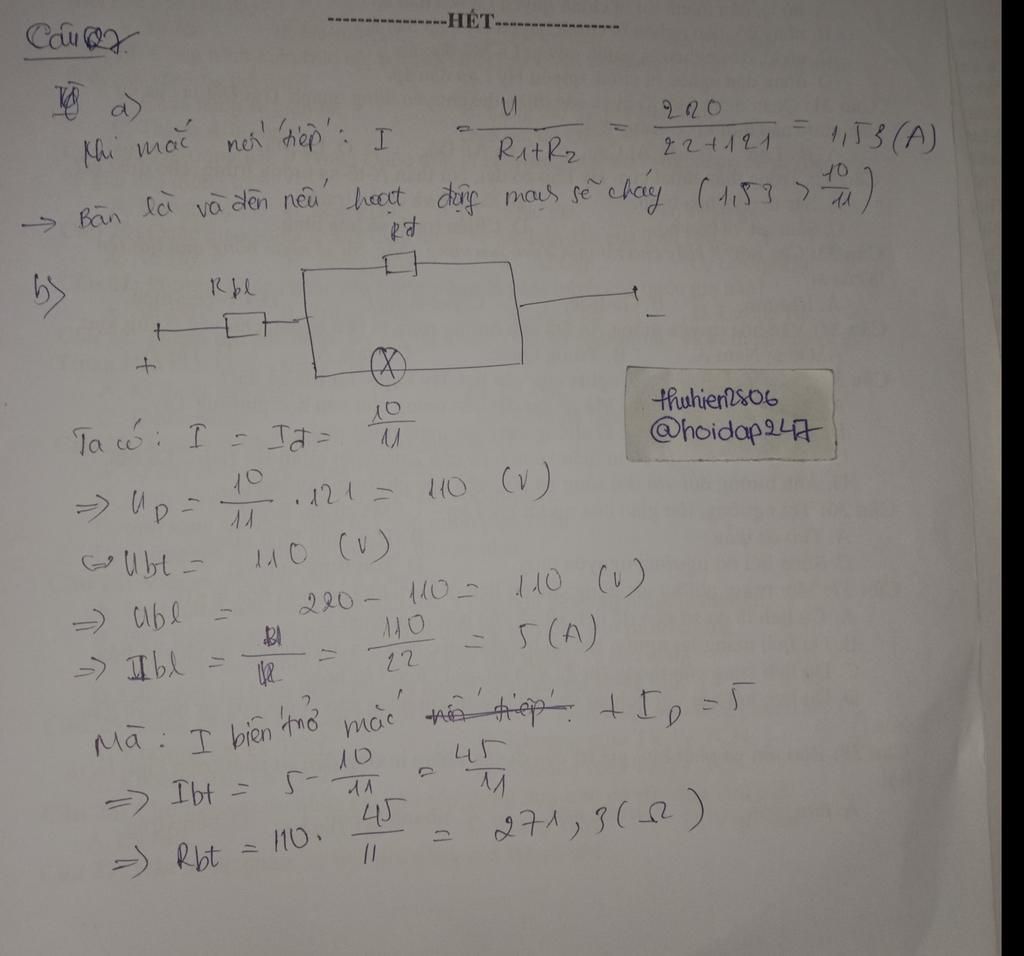 ----------------HẾT-----------------
Câu 27.
a)
Khi mắc nối tiếp: I = U / R1+R2 = 220 / 22+121 = 1,53 (A)
→ Bàn là và đèn nếu hoạt động mạy sẽ cháy (1,53 > 10/11)
Rđ
b)
Rbl
+ -
thuhien2806
@hoidap247
Ta có: I = Iđ = 10/11
=> UD = 10/11 . 121 = 110 (V)
<=> Ubt = 110 (V)
=> Ubl = 220 - 110 = 110 (V)
=> Ibl = U/R = 110/22 = 5 (A)
Mà: I biến trở mắc nối tiếp: + ID = 5
=> Ibt = 5 - 10/11 = 45/11
=> Rbt = 110 . 45/11 = 271,3 (Ω)